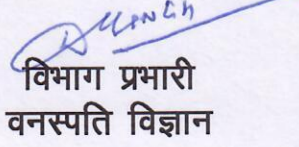 विभाग प्रभारी
वनस्पति विज्ञान